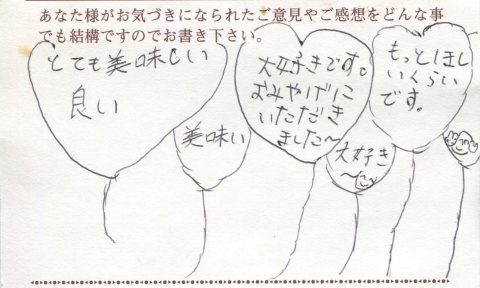 あなた様がお気づきになられたご意見やご感想をどんな事
でも結構ですのでお書き下さい。
とても美味しい
良い
美味い
大好きです。
おみやげに
いただき
ました～
大好き
～
もっとほし
いくらい
です。